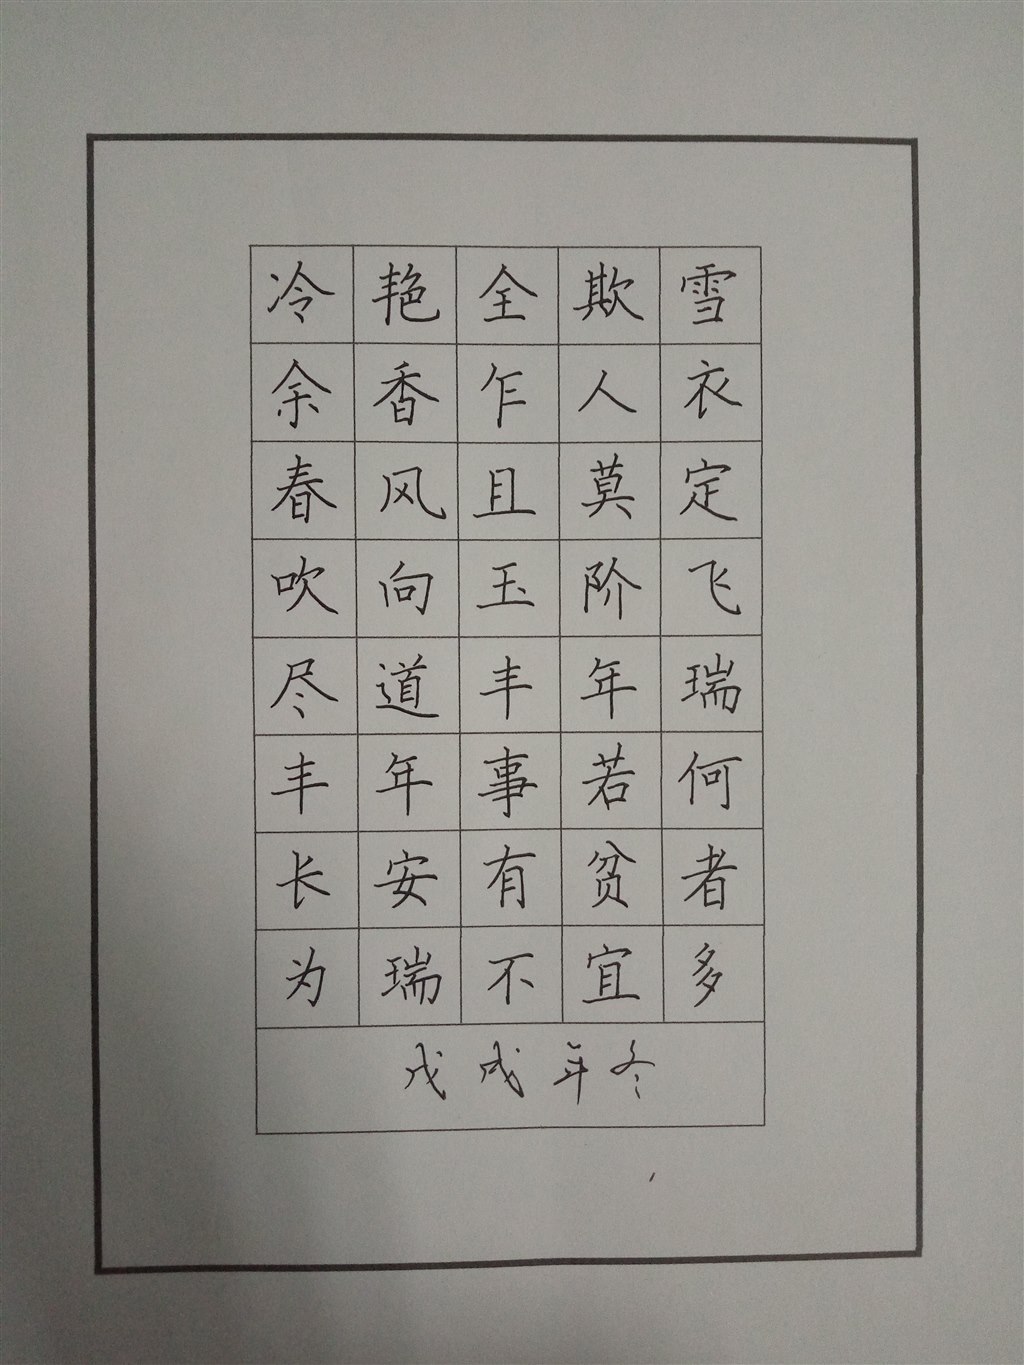 冷艳全欺雪
余香乍人衣
春风且莫定
吹向玉阶飞
尽道丰年瑞
丰年事若何
长安有贫者
为瑞不宜多
戊戌年冬